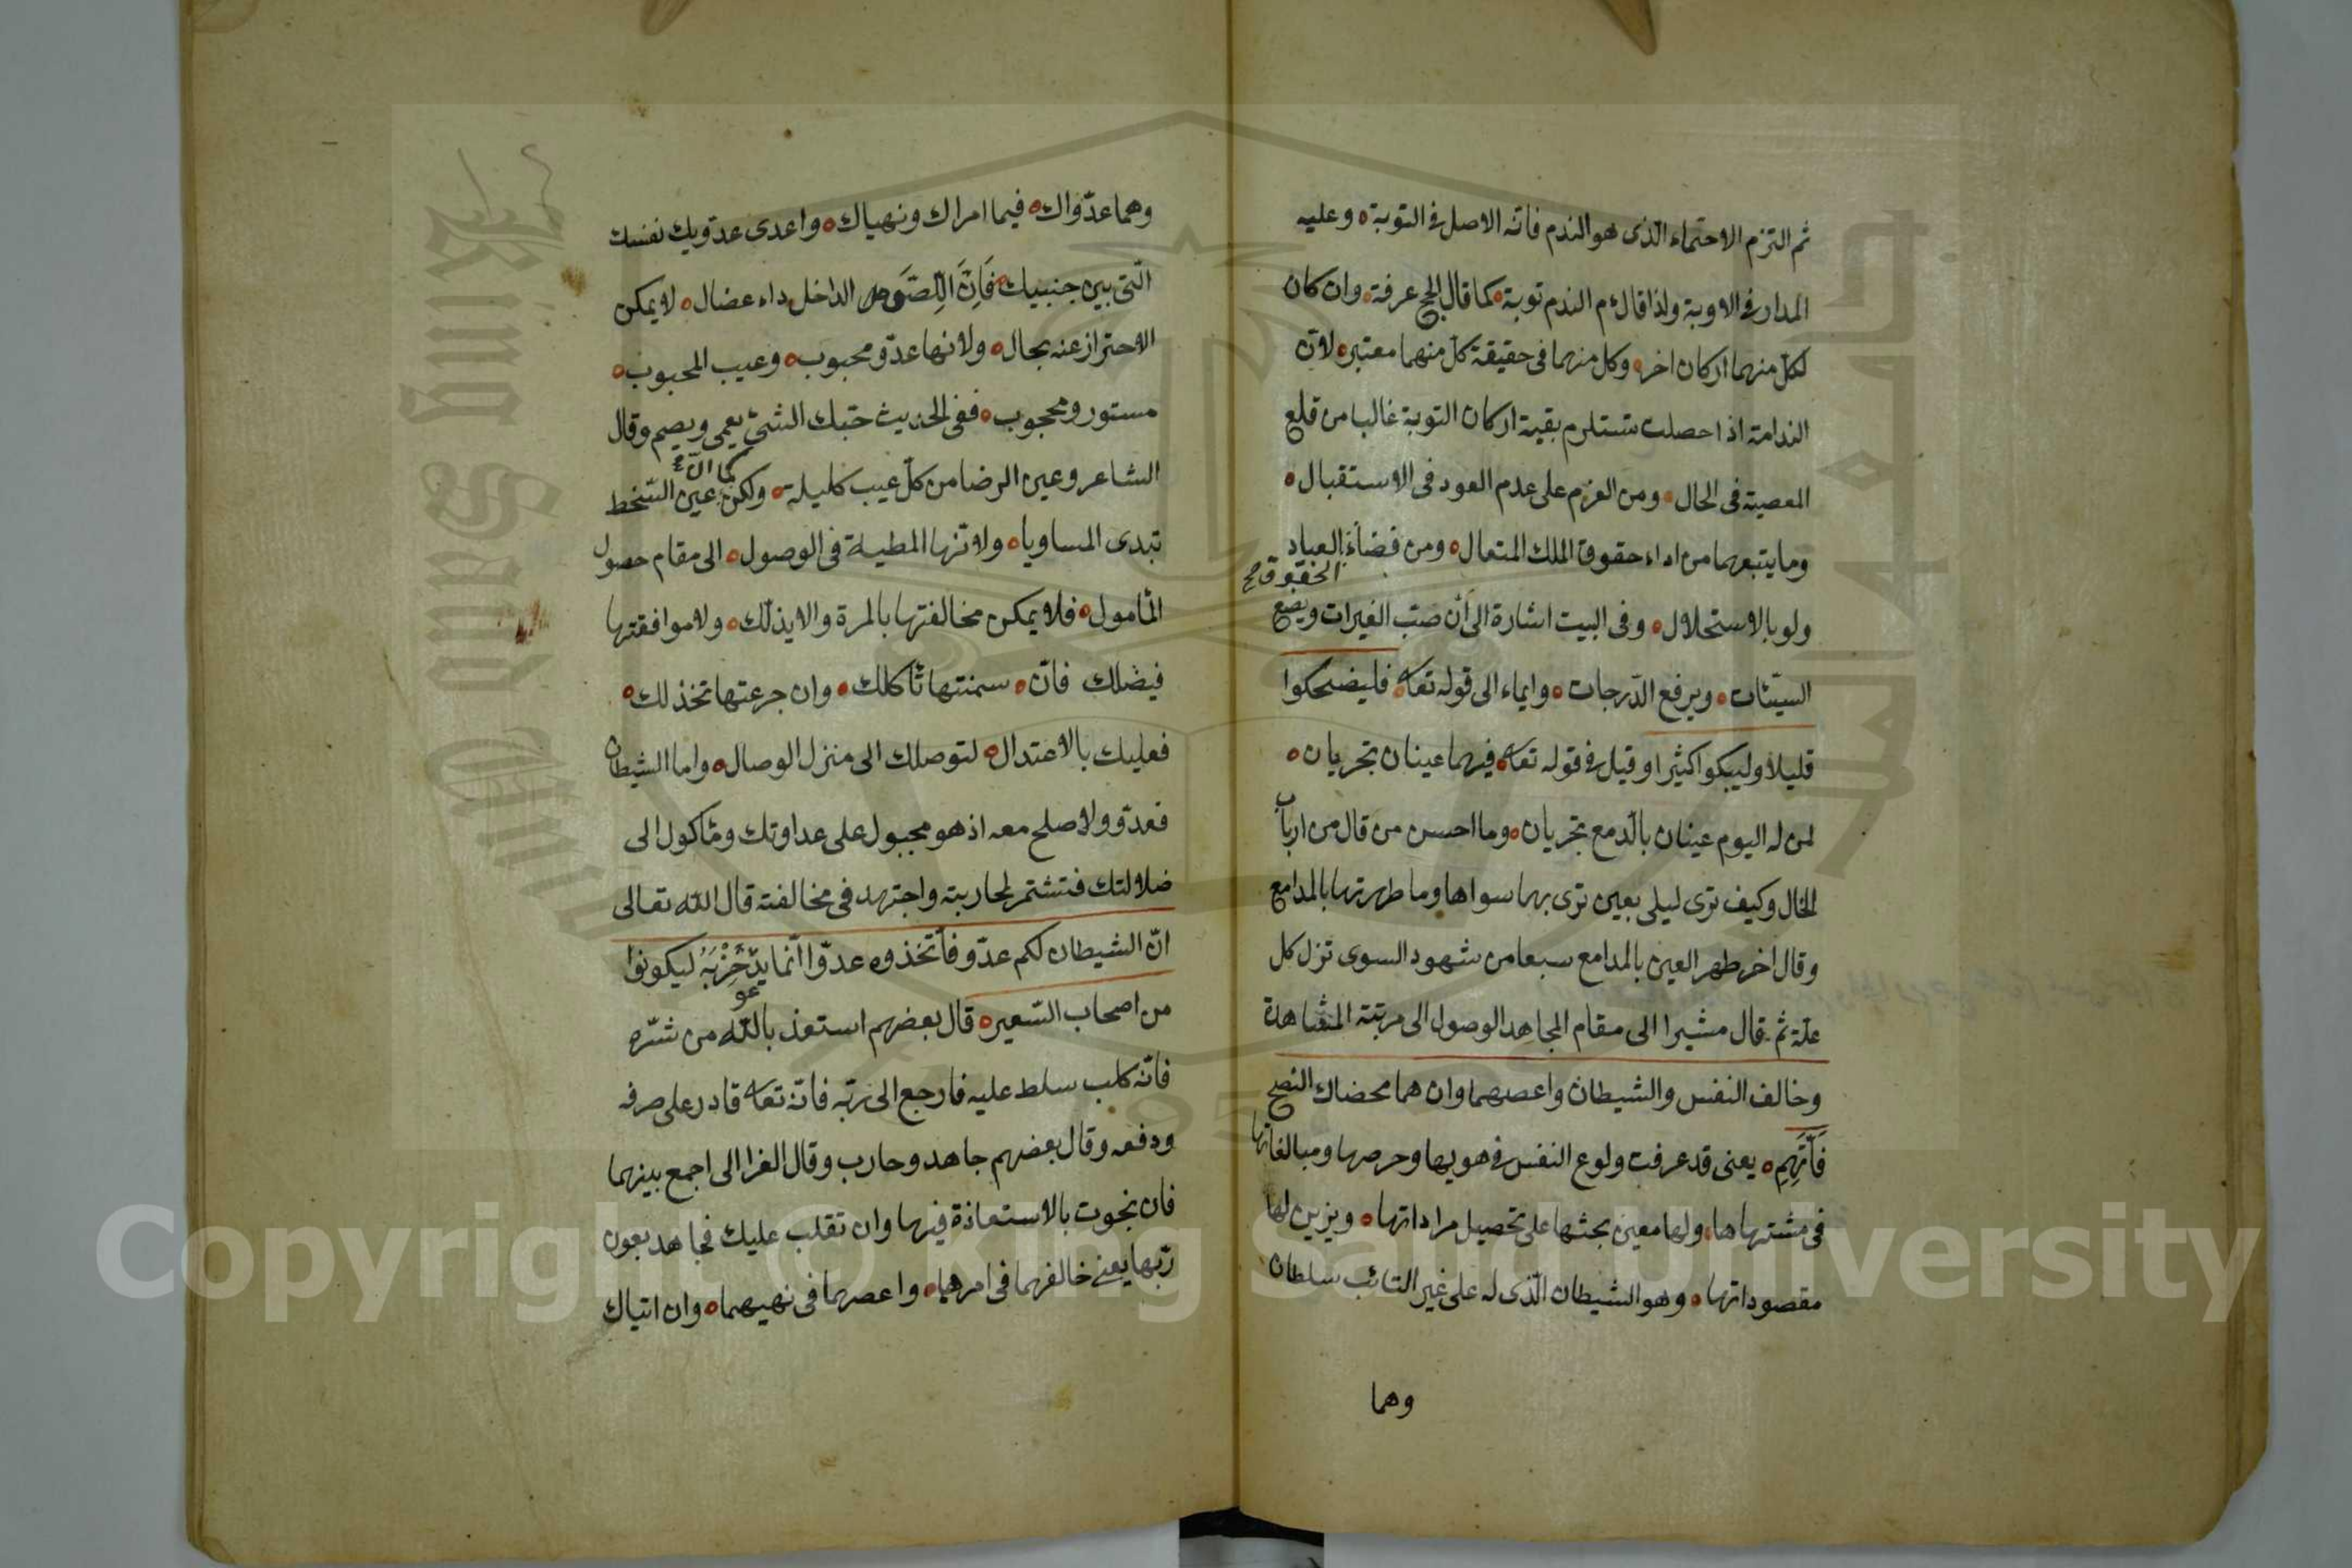 ثم التزم الاحتماء الّذى هو الندم فانّه الاصل فى التوبة ه وعليه
المدار فى الاوبة ولذا قال ۴م الندم توبة ه كما قال الحج عرفة ه وان كان
لكلّ منهما اركان اخر ه وكل منهما فى حقيقة كلّ منهما معتبر ه لانّ
الندامة اذا حصلت تستلزم بقية اركان التوبة غالبا من قلع
المعصية فى الحال ه ومن العزم على عدم العود فى الاستقبال ه
وما يتبعهما من اداء حقوق الملك المتعال ه ومن قضاء العباد
الحقوق صح
ولو بالاستحلال ه وفى البيت اشارة الى أن صبّ العبرات ويضع
السيّئات ه ويرفع الدّرجات ه وايماء الى قوله تعا ه فليضحكوا
قليلا وليبكوا كثيرا وقيل فى قوله تعا ه فيهما عينان تجريان ه
لمن له اليوم عينان بالدّمع تجريان ه وما احسن من قال من ارباب
الحال وكيف ترى ليلى بعين ترى بها سواها وما طهرتها بالمدامع
وقال اخر طهر العين بالمدامع سبعا من شهود السوى تزل كل
علّة ثم قال مشيرا الى مقام المجاهد الوصول الى مرتبة المشاهدة
وخالف النفس والشيطان واعصهما وان هما محضاك النصح
فَاتَّهِمِ ه يعنى قد عرفت ولوع النفس فى هويها وحرصها ومبالغاتها
فى مشتهاها ه ولها معين بحثها على تحصيل مراداتها ه ويزين لها
مقصوداتها ه وهو الشيطان الّذى له على غير التائب سلطان
وهما
وهما عدّواك ه فيما امراك ونهياك ه واعدى عدوّيك نفسك
الّتى بين جنبيك ه فَاِنَّ اللِّصَّ هو الداخل داء عضال ه لا يمكن
الاحتراز عنه بحال ه ولانها عدوّ محبوب ه وعيب المحبوب ه
مستور ومحجوب ه ففى الحديث حبّك الشئ يعمى ويصم وقال
الشاعر وعين الرضا من كلّ عيب كليلة ه ولكن عين السّخط
كما انّ صح
تبدى المساويا ه ولانّها المطية فى الوصول ه الى مقام حصول
المأمول ه فلا يمكن مخالفتها بالمرة والا يذلّك ه ولا موافقتها
فيضلك فانّ ه سمنتها تاكلك ه وان جرعتها تخذلك ه
فعليك بالاعتدال ه لتوصلك الى منزل الوصال ه واما الشيطان
فعدوّ ولا صلح معه اذ هو مجبول على عداوتك ومأكول الى
ضلالتك فتشتمر لحاربته واجتهد فى مخالفته قال الله تعالى
انّ الشيطان لكم عدوّ فاتّخذوه عدوّا انّما يدعو حِزْبَهُ ليكونوا
من اصحاب السّعير ه قال بعضهم استعذ بالله من شرّه
فانّه كلب سلط عليه فارجع الى ربّه فانّه تعا قادر على صرفه
ودفعه وقال بعضهم جاهد وحارب وقال الغزالى اجمع بينهما
فان نجوت بالاستعاذة فيها وان تقلب عليك فجاهد بعون
ربّها يعنى خالفهما فى امرهما ه واعصهما فى نهيهما ه وان اتياك
Copyright © King Saud University